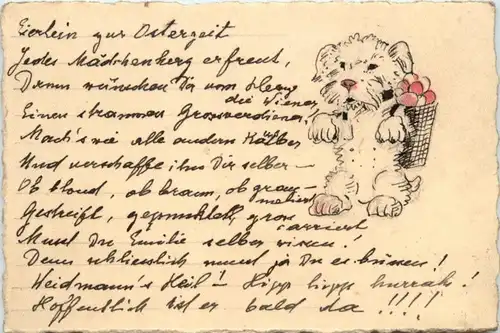 Eierlein zur Osterzeit
Jedes Mädchenherz erfreut,
Drum wünschen Dir vom Herz
die Wiener
Einen strammen Grossverdiener,
Mach's wie alle andern Kälber
Und verschaffe ihn Dir selber –
Ob blond, ob braun, ob grau –
meliert
Gestreift, gepunktelt, gross
carriert
Musst Du Emilie selber wissen!
Denn schliesslich musst ja Du es büssen!
Weidmann's Heil! – Hipp hipp hurrah!
Hoffentlich ist er bald da!!!!